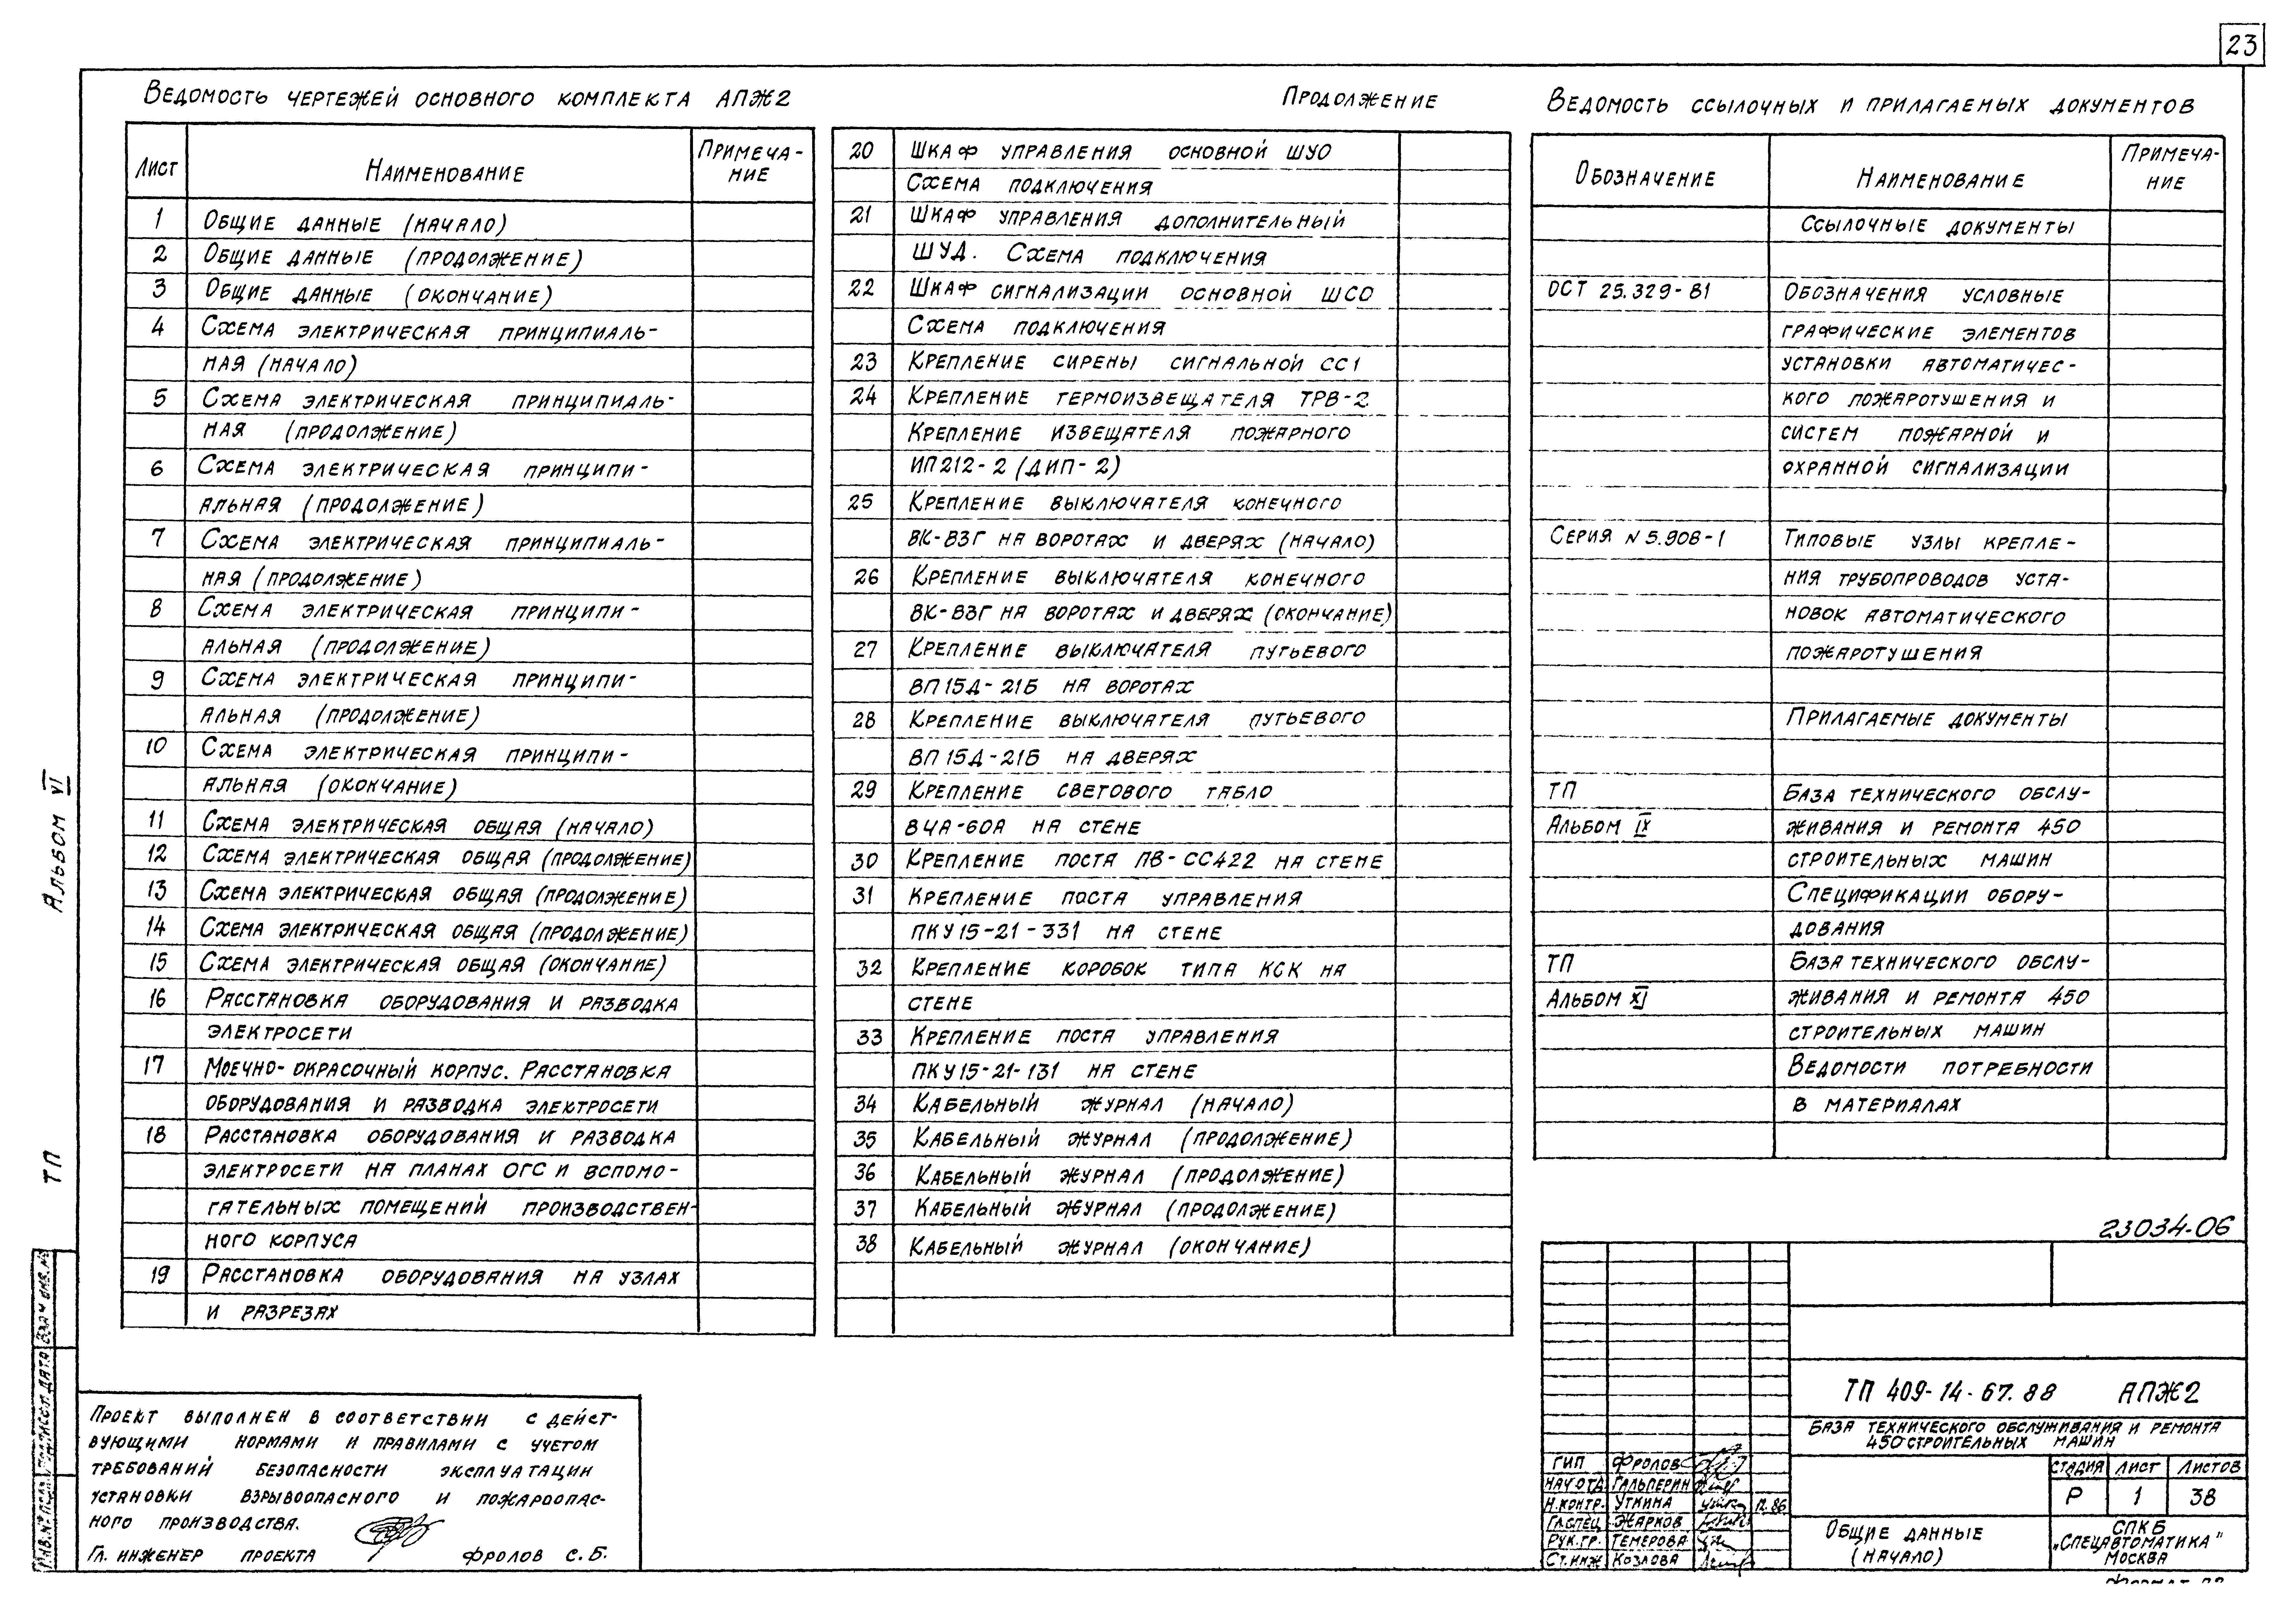 23
Ведомость чертежей основного комплекта АПЖ2
Лист Наименование Примеча-
ние
1 Общие данные (начало)
2 Общие данные (продолжение)
3 Общие данные (окончание)
4 Схема электрическая принципиаль-
ная (начало)
5 Схема электрическая принципиаль-
ная (продолжение)
6 Схема электрическая принципи-
альная (продолжение)
7 Схема электрическая принципиаль-
ная (продолжение)
8 Схема электрическая принципи-
альная (продолжение)
9 Схема электрическая принципи-
альная (продолжение)
10 Схема электрическая принципи-
альная (окончание)
11 Схема электрическая общая (начало)
12 Схема электрическая общая (продолжение)
13 Схема электрическая общая (продолжение)
14 Схема электрическая общая (продолжение)
15 Схема электрическая общая (окончание)
16 Расстановка оборудования и разводка
электросети
17 Моечно-окрасочный корпус. Расстановка
оборудования и разводка электросети
18 Расстановка оборудования и разводка
электросети на планах ОГС и вспомо-
гательных помещений производствен-
ного корпуса
19 Расстановка оборудования на узлах
и разрезах
Продолжение
20 Шкаф управления основной ШУО
Схема подключения
21 Шкаф управления дополнительный
ШУД. Схема подключения
22 Шкаф сигнализации основной ШСО
Схема подключения
23 Крепление сирены сигнальной СС1
24 Крепление термоизвещателя ТРВ-2
Крепление извещателя пожарного
ИП212-2 (ДИП-2)
25 Крепление выключателя конечного
ВК-В3Г на воротах и дверях (начало)
26 Крепление выключателя конечного
ВК-В3Г на воротах и дверях (окончание)
27 Крепление выключателя путьевого
ВП15Д-21Б на воротах
28 Крепление выключателя путьевого
ВП15Д-21Б на дверях
29 Крепление светового табло
ВЧА-60А на стене
30 Крепление поста ПВ-СС422 на стене
31 Крепление поста управления
ПКУ15-21-331 на стене
32 Крепление коробок типа КСК на
стене
33 Крепление поста управления
ПКУ15-21-131 на стене
34 Кабельный журнал (начало)
35 Кабельный журнал (продолжение)
36 Кабельный журнал (продолжение)
37 Кабельный журнал (продолжение)
38 Кабельный журнал (окончание)
Ведомость ссылочных и прилагаемых документов
Обозначение Наименование Примеча-
ние
Ссылочные документы
ОСТ 25.329-81 Обозначения условные
графические элементов
установки автоматичес-
кого пожаротушения и
систем пожарной и
охранной сигнализации
Серия N 5.908-1 Типовые узлы крепле-
ния трубопроводов уста-
новок автоматического
пожаротушения
Прилагаемые документы
ТП База технического обслу-
Альбом IX живания и ремонта 450
строительных машин
Спецификации обору-
дования
ТП База технического обслу-
Альбом XI живания и ремонта 450
строительных машин
Ведомости потребности
в материалах
Альбом VI
ТП
Проект выполнен в соответствии с дейст-
вующими нормами и правилами с учетом
требований безопасности эксплуатации
установки взрывоопасного и пожароопас-
ного производства.
Гл. инженер проекта Фролов С.Б.
23034-06
ТП 409-14-67.88 АПЖ2
База технического обслуживания и ремонта
450 строительных машин
ГИП Фролов
Нач отд Гальперин
Н.контр. Уткина
Гл.спец Жарков
Рук.гр. Темерова
Ст.инж Козлова
Стадия Лист Листов
Р 1 38
Общие данные
(начало)
СПКБ
„Спецавтоматика"
Москва